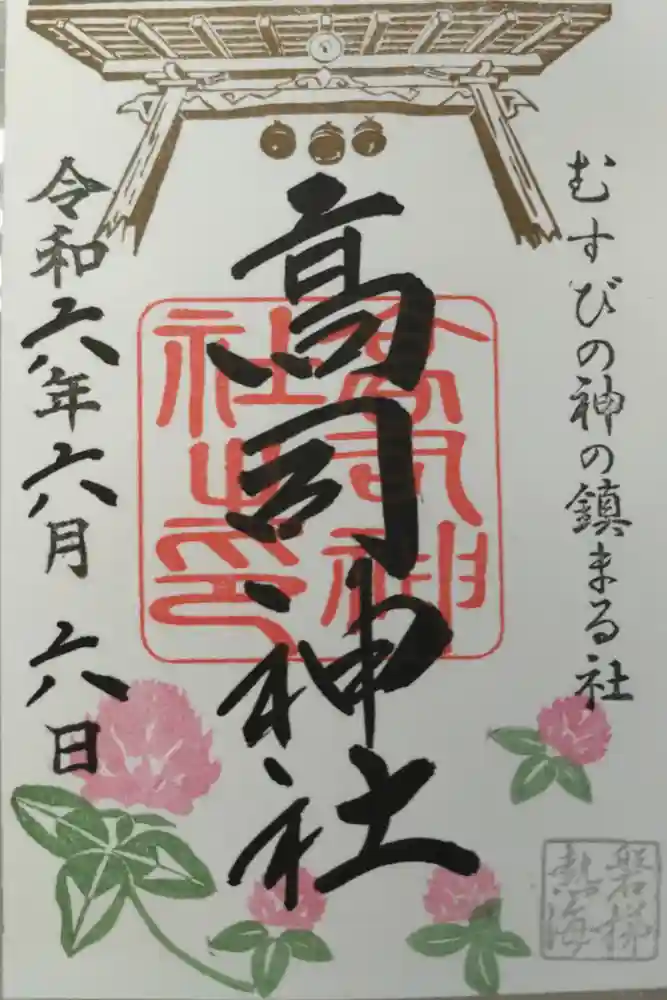 むすびの神の鎮まる社
高司神社
高司神社之印
令和六年六月六日
磐梯熱海